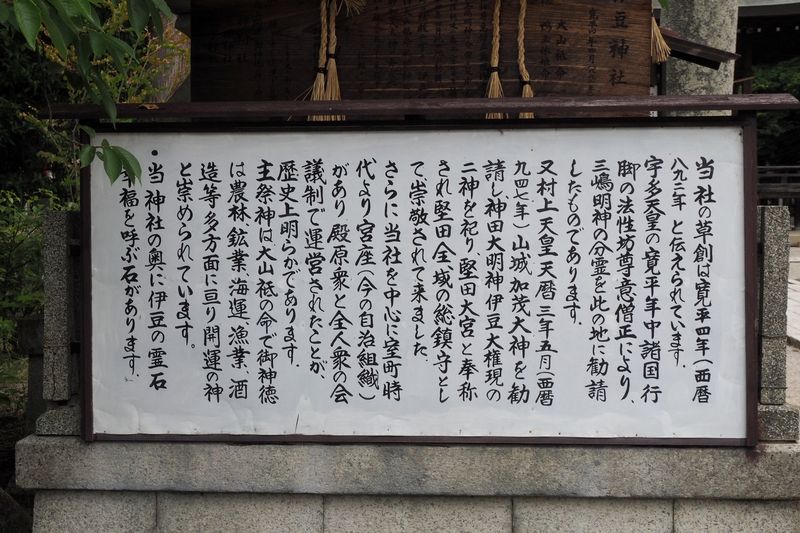 伊豆神社
大山祇命
当社の草創は寛平四年(西暦
八九二年)と伝えられています。
宇多天皇の寛平年中諸国行
脚の法性坊尊意僧正により、
三嶋明神の分霊を此の地に勧請
したものであります。
又村上天皇天暦三年五月(西暦
九四七年)山城加茂大神を勧
請し神田大明神伊豆大権現の
二神を祀り堅田大宮と奉称
され堅田全域の総鎮守とし
て、崇敬されて来ました。
さらに当社を中心に室町時
代より宮座(今の自治組織)
があり殿原衆と全人衆の会
議制で運営されたことが、
歴史上明らかであります。
主祭神は、大山祇の命で御神徳
は農林、鉱業、海運、漁業、酒
造等多方面に亘り開運の神
と崇められています。
・当神社の奥に伊豆の霊石
幸福を呼ぶ石があります。